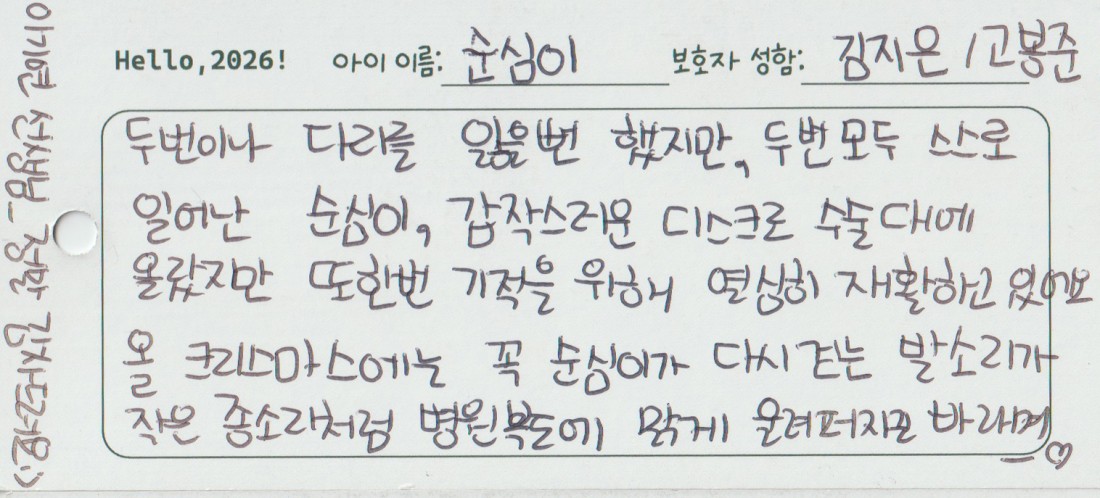 Hello,2026! 아이 이름: 순심이 보호자 성함: 김지은 / 고봉준
두번이나 다리를 잃을뻔 했지만, 두번모두 스스로
일어난 순심이, 갑작스러운 디스크로 수술대에
올랐지만 또한번 기적을 위해 열심히 재활하고 있어요
올 크리스마스에는 꼭 순심이가 다시 걷는 발소리가
작은 종소리처럼 병원복도에 맑게 울려퍼지기 바래며